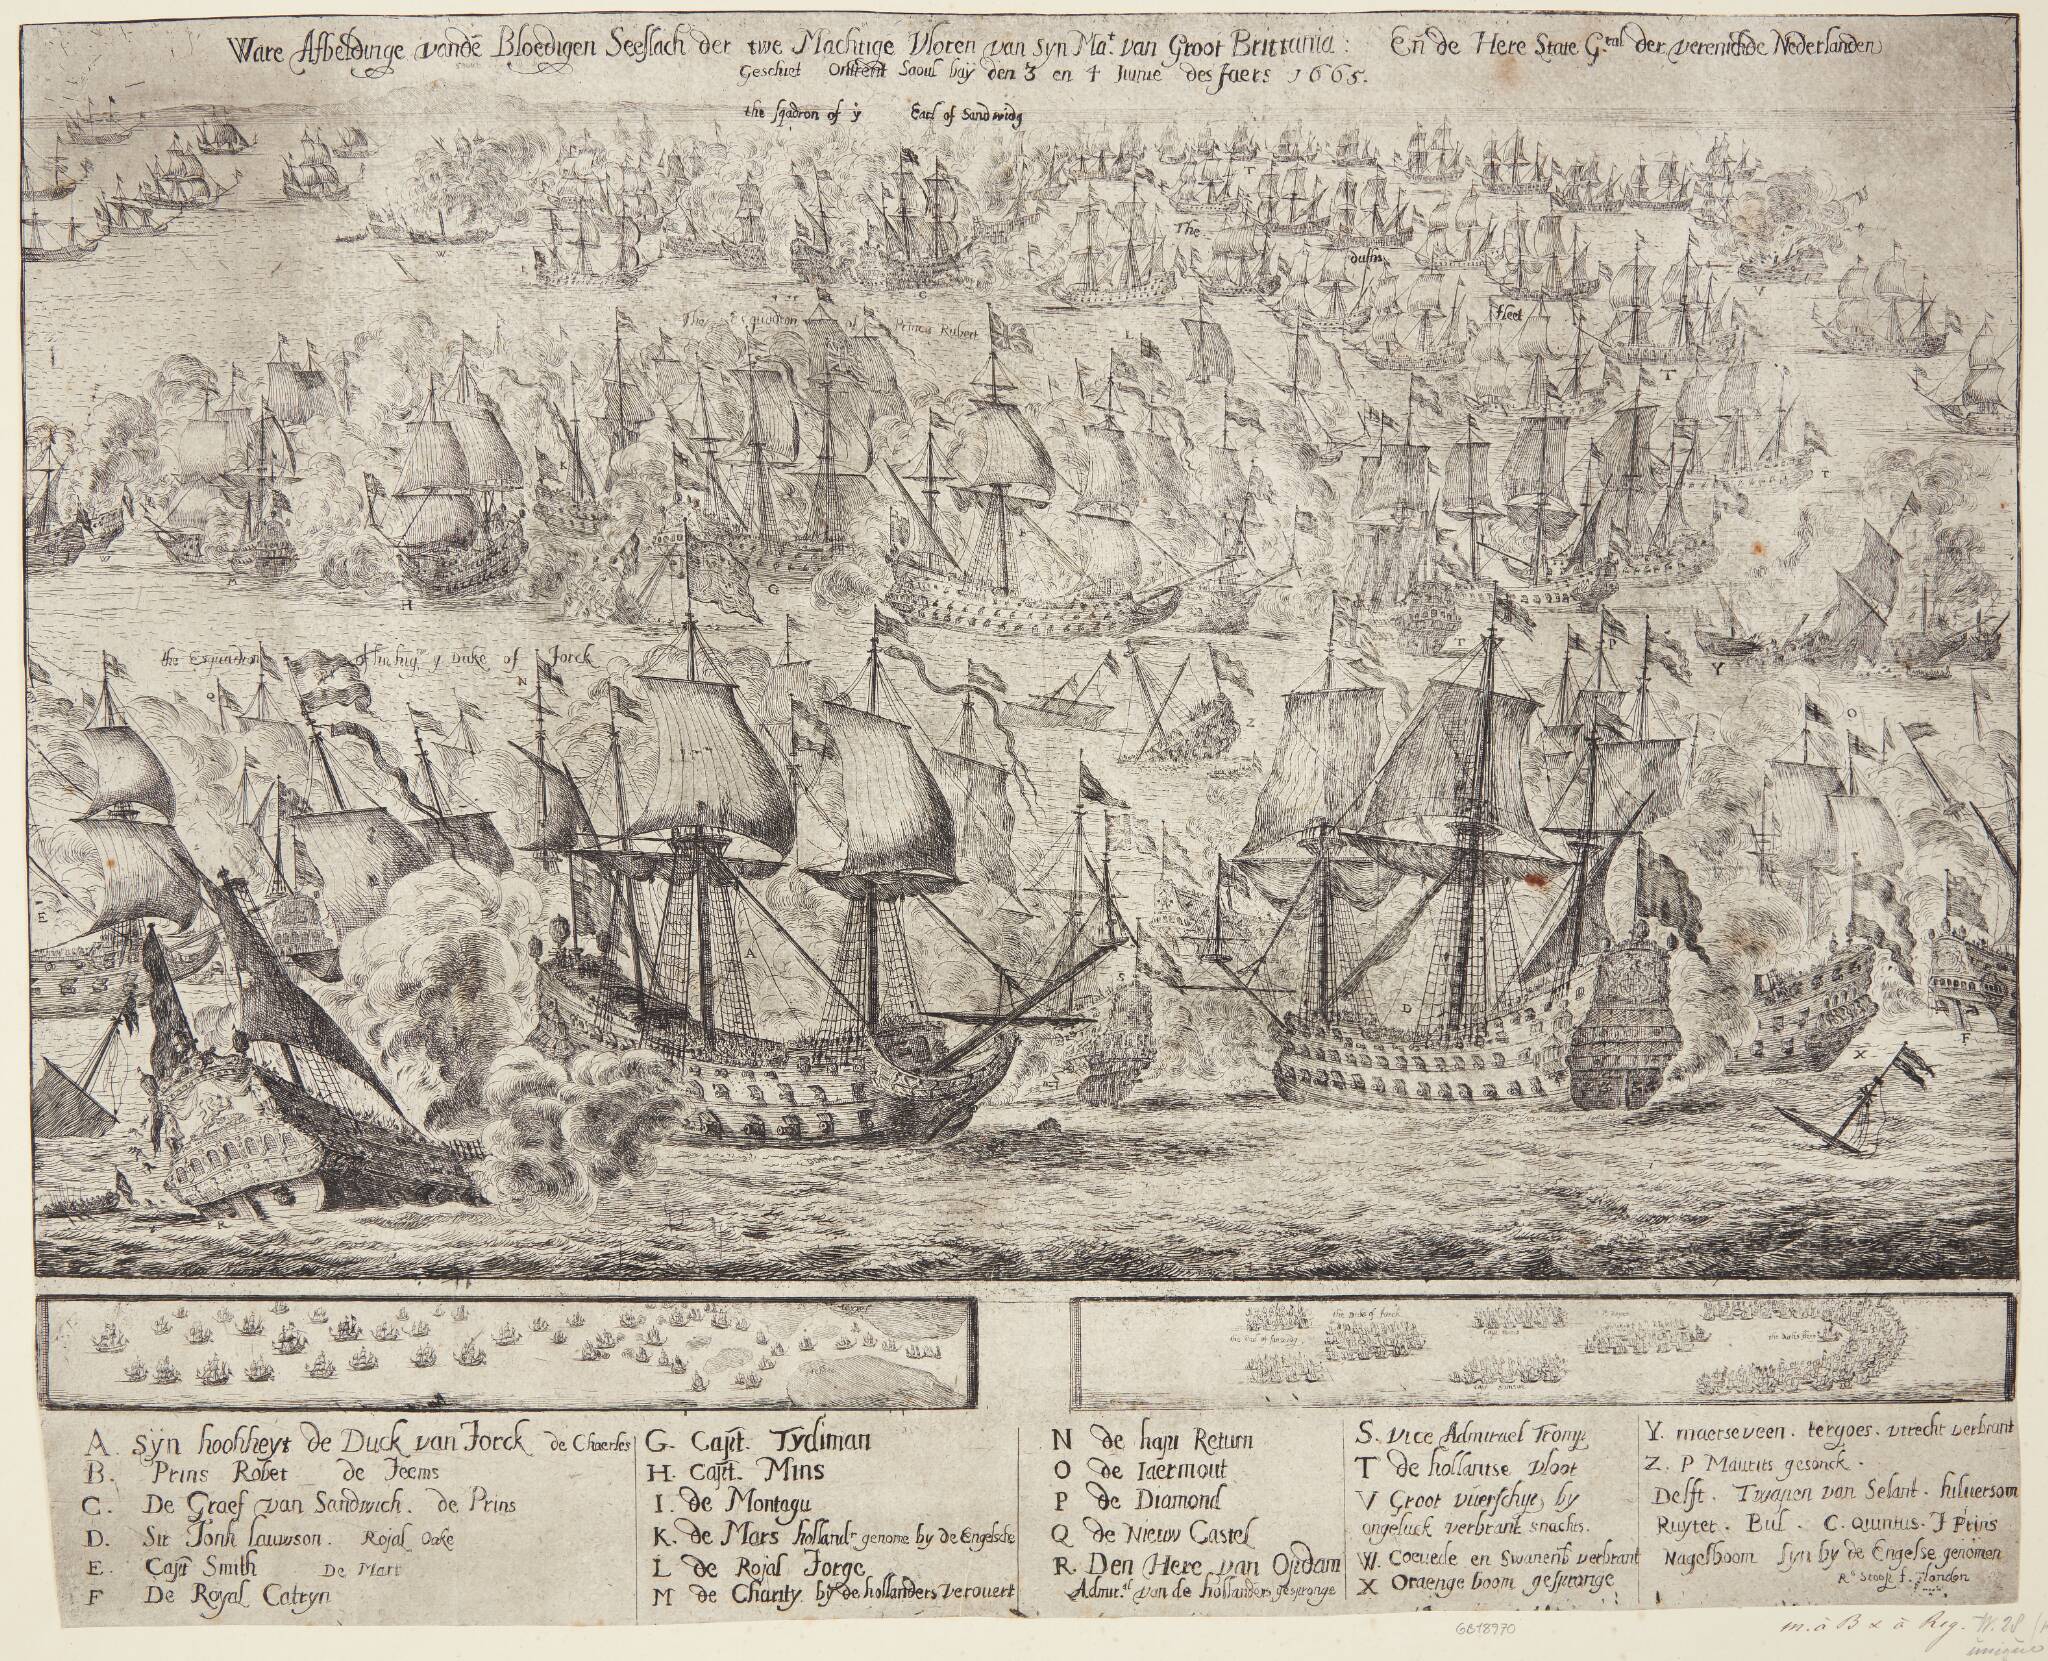 Ware Afbeldinge vande Bloedigen Seeslach der twe Machtige Vloten van syn Maᵗ van Groot Brittania: En de Here State Gʳᵃˡ der verenichde Nederlanden
Geschiet Ontrent Saoul bay den 3 en 4 Junie des Jaers 1665.
the sqadron of ÿ Earl of Sandwidg
The
duths
fleet
The Esquadron of Prince Rubert
the Esquadron of hu hig y Duke of Jorck
the Duke of Jorck
A. Sÿn hoohheyt de Duck van Jorck de Chaerles
B. Prins Robet de Jeems
C. De Graef van Sandwich. de Prins
D. Sir Jonh Lauwson. Rojal Oake
E. Capt Smith De Mart
F De Royal Catryn
G. Capt. Tydiman
H. Capt. Mins
I. de Montagu
K. de Mars hollandʳ genome by de Engelsche
L de Rojal Jorge
M de Charity by de hollanders verouert
N de hapi Return
O de Iaermout
P de Diamond
Q de Nieuw Castel
R. Den Here van Opdam
Admirᵃˡ van de hollanders gespronge
S. vice Admirael Tromp
T de hollantse vloot
V Groot vuerschip by
ongeluck verbrant snachts.
W. Coeuede en Swanenb verbrant
X Oraenge boom gespronge
Y. maerseveen. tergoes. vtrecht verbrant
Z. P Maurits gesonck.
Delft. Twapen van Selant. hiluersom
Ruyter. Bul. C. Quintus. J Prins
Nagelboom syn by de Engelse genomen
Rᵒ Stoop f. London
GB18970
m. à B & à Reg. W. 28
unique